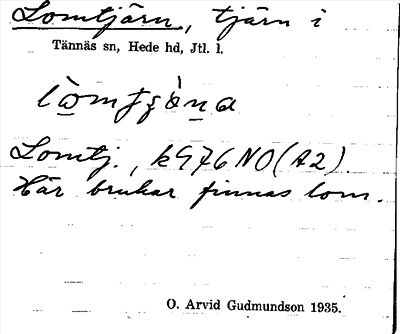 Lomtjärn, tjärn i
Tännäs sn, Hede hd, Jtl. l.
Lomtj., k976 NO (A2).
Här brukar finnas lom.
O. Arvid Gudmundson 1935.